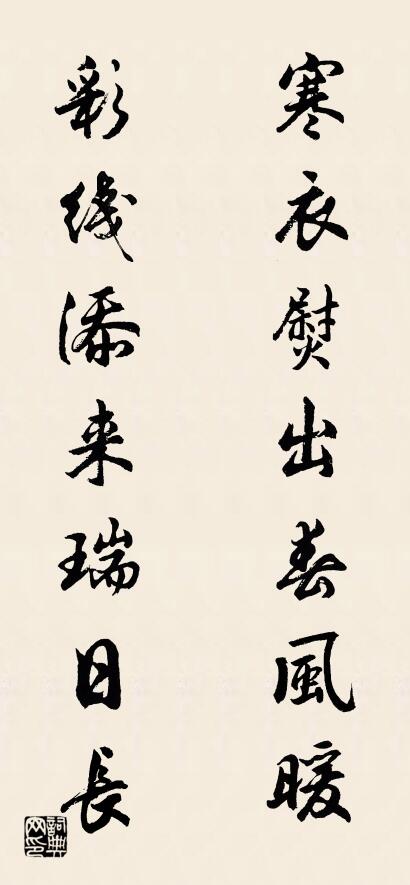 寒衣熨出春風暖
彩线添来瑞日長
詞典
网印